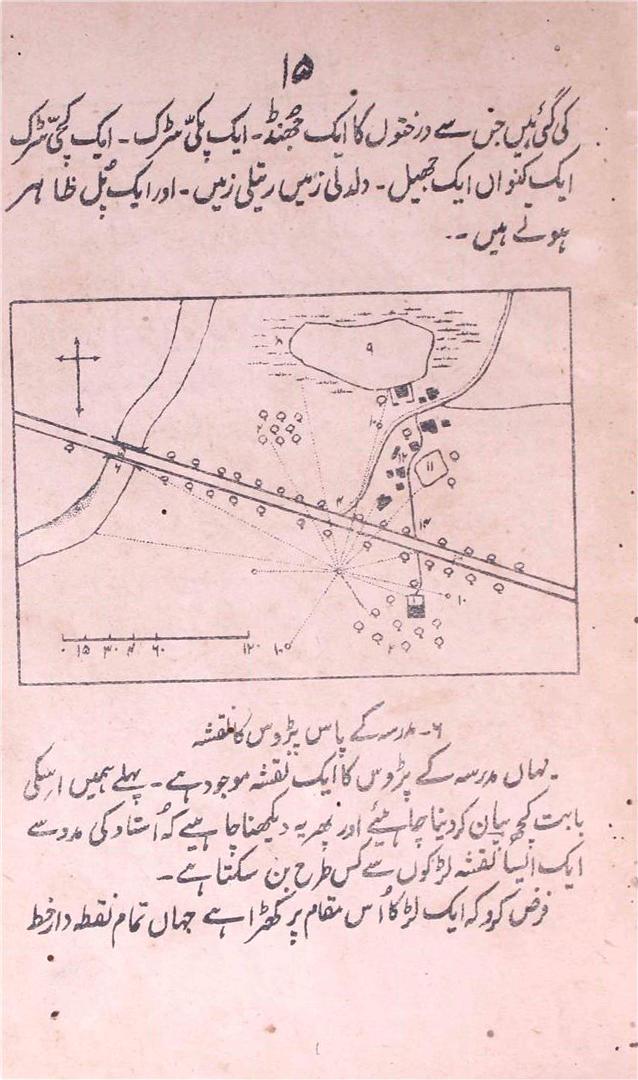 ۱۵
کی گئی ہیں جن سے درختوں کا ایک جھنڈ۔ ایک پکّی سڑک۔ ایک کچّی سڑک
ایک کنواں ایک جھیل۔ دلدلی زمیں ریتلی زمیں۔ اور ایک پُل ظاہر
ہوتے ہیں۔۔
۸
۹
۱۰
۲
۱۲
۱۱
۶
۴
۱۳
۱
۱۰
۲
۱۰
۰ ۱۵ ۳۰ ۶۰ ۱۲۰
۶۔ مدرسہ کے پاس پڑوس کا نقشہ
یہاں مدرسہ کے پڑوس کا ایک نقشہ موجود ہے۔ پہلے ہمیں اسکی
بابت کچھ بیان کر دینا چاہئیے اور پھر یہ دیکھنا چاہیے کہ اُستاد کی مدد سے
ایک ایسا نقشہ لڑکوں سے کس طرح بن سکتا ہے۔
فرض کرو کہ ایک لڑکا اُس مقام پر کھڑا ہے جہاں تمام نقطہ دار خط